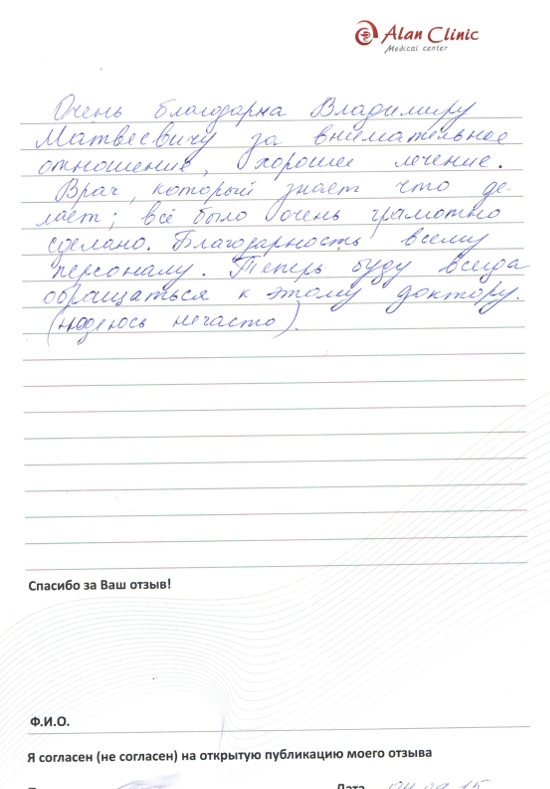 Alan Clinic
Medical center
Очень благодарна Владимиру
Матвеевичу за внимательное
отношение, хорошее лечение.
Врач, который знает что де-
лает; всё было очень грамотно
сделано. Благодарность всему
персоналу. Теперь буду всегда
обращаться к этому доктору.
(надеюсь нечасто).
Спасибо за Ваш отзыв!
Ф.И.О.
Я согласен (не согласен) на открытую публикацию моего отзыва